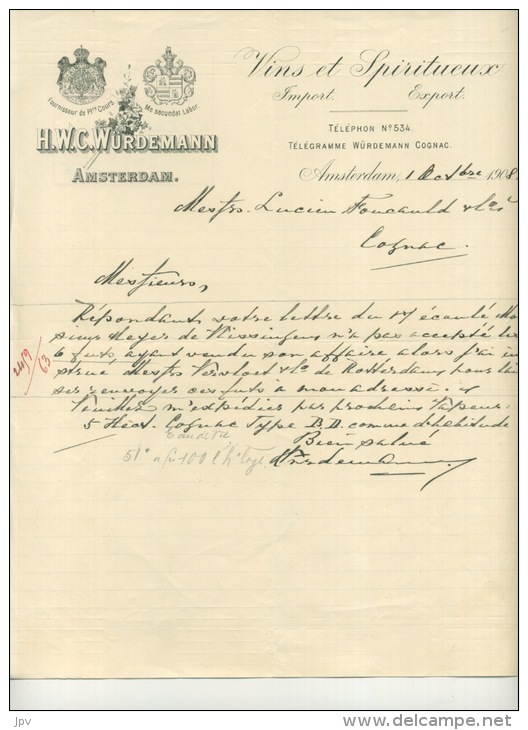 Vins et Spiritueux
Import. Export.
Fournisseur de Pltes Cours.
Me secundat Labor.
H.W.C. WÜRDEMANN
AMSTERDAM.
TÉLÉPHON No 534.
TÉLÉGRAMME WÜRDEMANN COGNAC.
Amsterdam, 1 Octbre 1908
Messrs. Lucien Foucauld & Cie
Cognac.
Messieurs,
Répondant votre lettre du 17 écoulé Mon
sieur Meyer de Vlissingen n'a pas accepté les
6 futs ayant vendu son affaire alors j'ai in
strué Messrs & Co de Rotterdam pour
ces futs à mon adresse. &
Veuillez m'expedier par prochain Vapeur:
5 Hect. Cognac Type B.D. comme d'habitude
Bien salué
Würdemann
51° 100 l
2419
63
delcampe.net
jpv